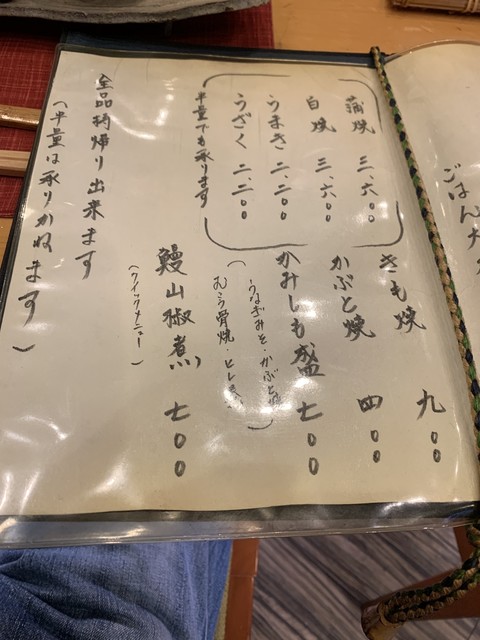 ごはん大
蒲焼 三、六〇〇
白焼 三、六〇〇
うまき 二、二〇〇
うざく 二、二〇〇
半量でも承ります
きも焼 九〇〇
かぶと焼 四〇〇
かみしも盛 七〇〇
(うなぎみそ・かぶと焼
むし骨焼・ヒレ焼)
鰻山椒煮 七〇〇
(クイックメニュー)
全品持帰り出来ます
(半量は承りかねます)